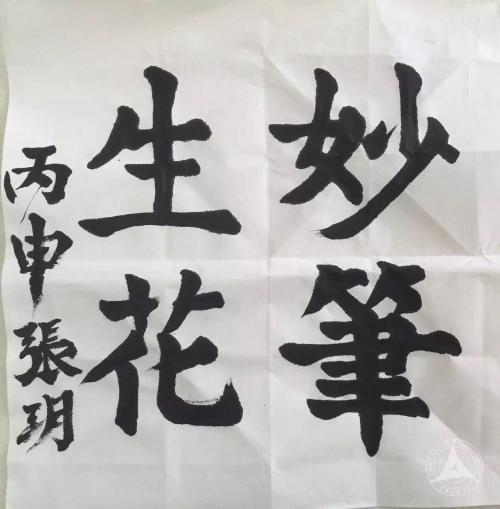 妙筆
生花
丙申張玥